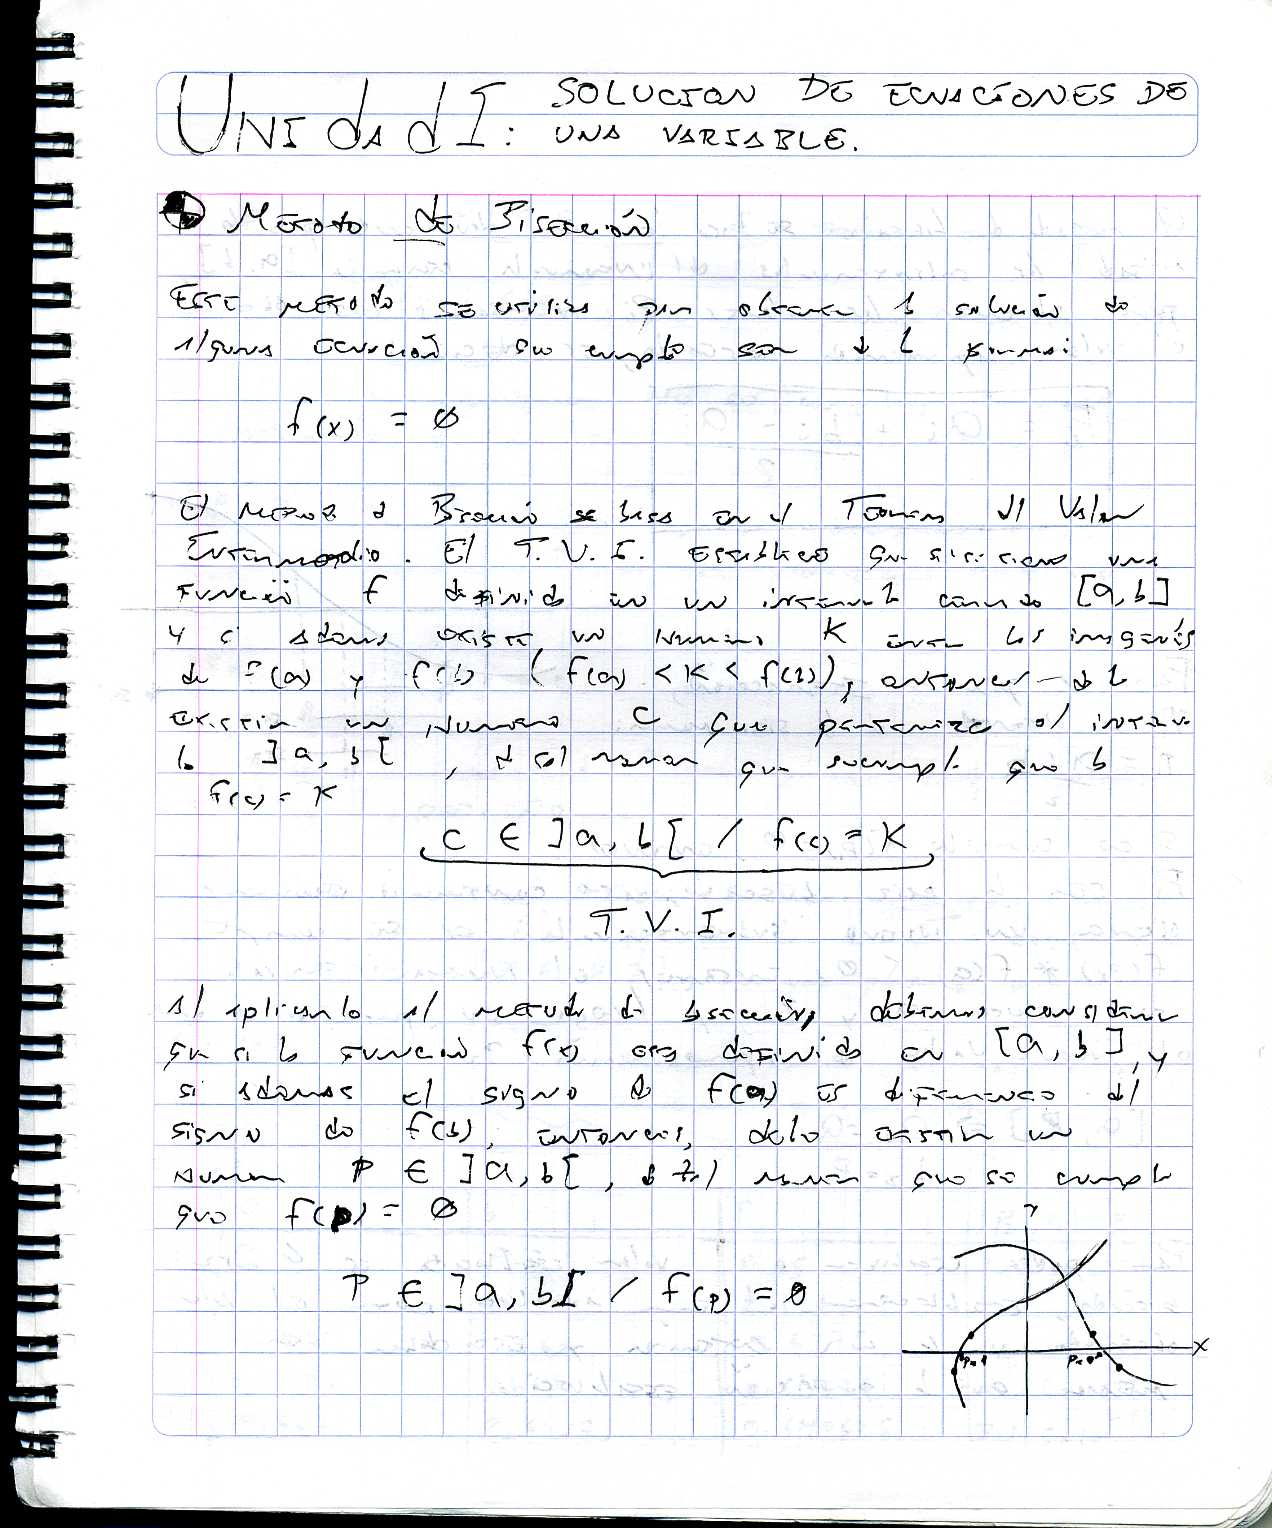 Unidad I: SOLUCION DE ECUACIONES DE
UNA VARIABLE.
Metodo de Bisección
Este metodo se utiliza para obtener la solución de
alguna ecuación que cumpla con la forma:
f(x) = 0
El metodo de Bisección se basa en el Teorema del Valor
Intermedio. El T.V.I. establece que si se tiene una
función f definida en un intervalo cerrado [a,b]
y si además existe un numero K entre las imagenes
de f(a) y f(b) (f(a) < K < f(b)), entonces debe
existir un numero C que pertenezca al interva
lo ]a, b[ , de tal manera que se cumple que
f(c) = K
C ∈ ]a, b[ / f(c) = K
T.V.I.
Al aplicarlo al metodo de bisección, debemos considerar
que si la función f(x) esta definida en [a, b], y
si ademas el signo de f(a) es diferente del
signo de f(b), entonces, debe existir un
numero P ∈ ]a, b[ , de tal manera que se cumpla
que f(p) = 0
P ∈ ]a, b[ / f(p) = 0
y
x